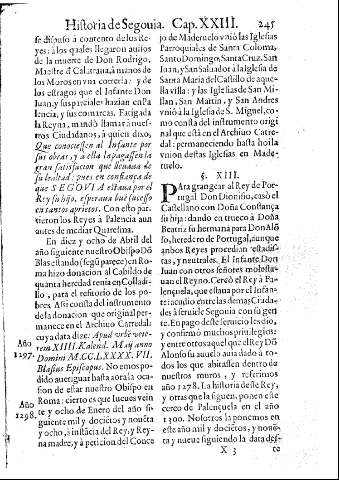 Historia de Segouia. Cap. XXIII. 245
se dispuso à contento de los Reyes: à los quales llegaron auisos
de la muerte de Don Rodrigo,
Maestre đ Calatraua, à manos de
los Moros en vna correria: y de
los estragos que el Infante Don
Iuan, y sus parciales hazian en Palencia, y sus comarcas. Fatigada
la Reyna, mandò llamar à nuestros Ciudadanos, à quien dixo,
Que conociessen al Infante por
sus obras, y à ella la pagassen la
gran satisfacion que lleuaua de
su lealtad: pues en confiança de
que SEGOVIA estaua por el
Rey su hijo, esperaua buē sucesso
en tantos aprietos. Con esto partieron los Reyes à Palencia aun
antes de mediar Quaresma.
En diez y ocho de Abril del
año siguiente nuestro Obispo Dō
Blas estando (segū parece) en Roma hizo donacion al Cabildo de
quanta heredad tenia en Colladillo, para el refitorio de los pobres. Assi consta del instrumento
de la donacion que original permanece en el Archiuo Catredal:
cuya data dize: Apud vrbē veterem XIIII. Kalend. Maij anno
Domini M.CC.LXXXX.VII.
Blasius Episcopus. No emos podido aueriguar hasta aora la ocasion de estar nuestro Obispo en
Roma: cierto es que Iueues veinte y ocho de Enero del año siguiente mil y docientos y nouēta
y ocho, à instācia del Rey, y Reyna madre, y à peticion del Conce
Año
1297.
Año
1298.
jo de Maderuelo vniò las Iglesias
Parroquiales de Santa Coloma,
Santo Domingo, Santa Cruz, San
Iuan, y San Saluador à la Iglesia de
Santa Maria del Castillo de aquella villa: y las Iglesias de San Millan, San Martin, y San Andres
vniò à la Iglesia de S. Miguel, como consta del instrumento original que està en el Archiuo Catredal: permaneciendo hasta hoi la
vnion destas Iglesias en Maderuelo.
§. XIII.
PAra grangear al Rey de Portugal Don Dionisio, casò el
Castellano con Doña Constança
su hija: dando en trueco à Doña
Beatriz su hermana para Don Alōso, heredero de Portugal, aunque
anbos Reyes procedian estadistas, y neutrales. El Infante Don
Iuan con otros señores molestauan el Reyno. Cercò el Rey à Palençuela, que estaua por el Infante: acudio entre las demas Ciudades à seruirle Segouia con su gente. En pago deste seruicio les dio,
y confirmò muchos priuilegios:
y entre otros aquel que el Rey Dō
Alonso su auuelo auia dado à todos los que abitassen dentro de
nuestros muros, y referimos
año 1278. La historia deste Rey,
y otras que la siguen, ponen este
cerco de Palençuela en el año
1300. Nosotros la ponemos en
este año mil y docientos, y nouenta y nueue siguiendo la data des-
X 3 te